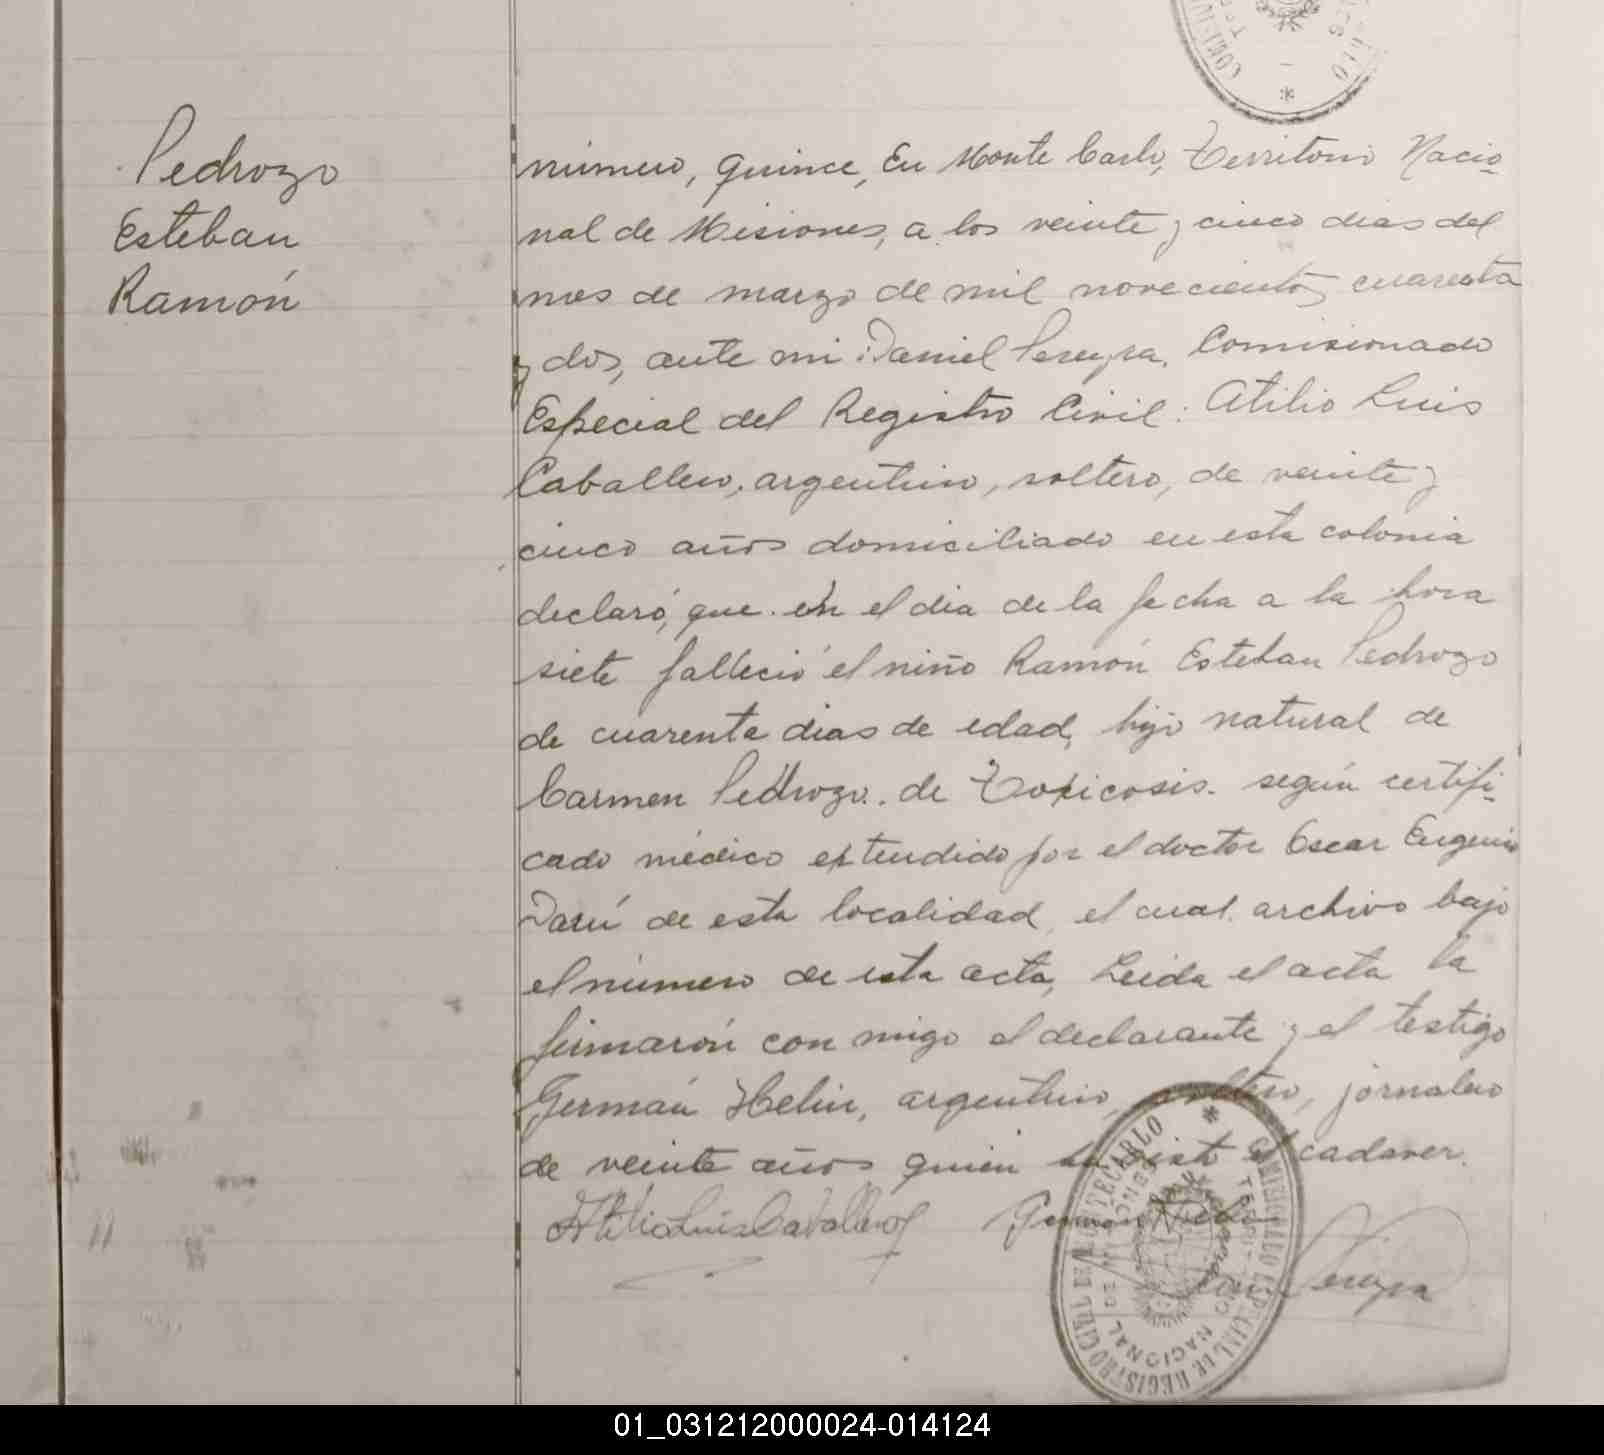 Pedrozo
Esteban
Ramón
número, quince, En Monte Carlo, Territorio Nacio-
nal de Misiones, a los veinte y cinco dias del
mes de marzo de mil novecientos cuarenta
y dos, ante mi Daniel Pereyra, Comisionado
Especial del Registro Civil: Atilio Luis
Caballero, argentino, soltero, de veinte y
cinco años domiciliado en esta colonia
declaró, que en el dia de la fecha a la hora
siete falleció el niño Ramón Esteban Pedrozo
de cuarenta dias de edad, hijo natural de
Carmen Pedrozo. de Toxicosis. según certifi-
cado médico extendido por el doctor Oscar Eugenio
Darú de esta localidad, el cual archivo bajo
el número de esta acta, Leida el acta la
firmarón con migo el declarante y el testigo
Germán Helin, argentino, soltero, jornalero
de veinte años quien ha visto el cadaver.
Atilio Luis Caballero German
Pereyra
REGISTRO CIVIL MONTECARLO
COMISIONADO ESPECIAL DE REGISTRO
NACIONAL DE MISIONES
01_031212000024-014124